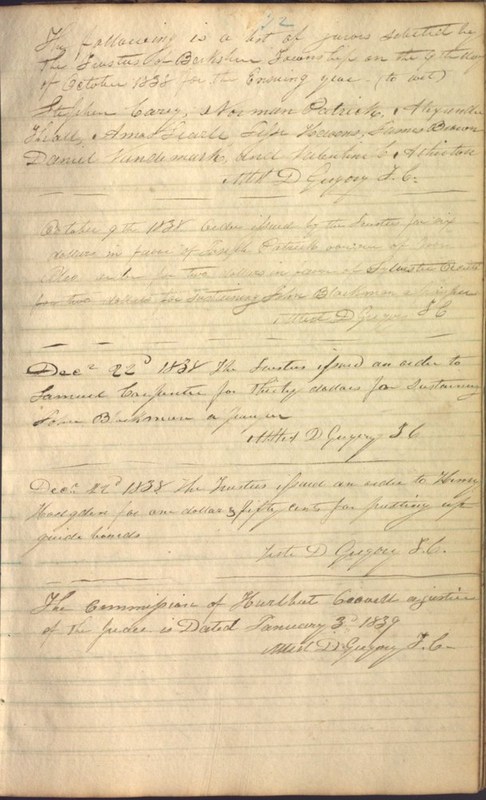 72
The following is a list of jurors selected by
the Trustees of Berkshire Township on the 9th day
of October 1838 for the Ensuing year (to wit)
Stephen Carey, Norman Patrick, Alexander
Amos Searll James Brown
Daniel Vandemark, and Valentine C
Attest D Gregory T. C.
October 9th 1838 Order issued by the Trustees for six
dollars in favor of Joseph Patrick
Also order for two dollars in favor of Sylvester
for two dollars for sustaining John Blackman a pauper
Attest D Gregory T C
Decr 22d 1838 The Trustees issued an order to
Samuel Carpenter for thirty dollars for Sustaining
Blackman a pauper
Attest D Gregory T C
Decr 22d 1838 The Trustees issued an order to Henry
Hodgden for one dollar & fifty cents for putting up
guide boards
Teste D Gregory T. C.
The Commission of Hurlbut Covell a justice
of the peace is Dated January 3d 1839
Attest D Gregory T. C.